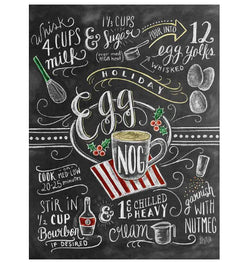 whisk
4 CUPS
milk
&
1½ CUPS
Sugar
OVER MED HIGH HEAT
POUR INTO
12
egg yolks
WHISKED
HOLIDAY
Egg
NOG
COOK MED-LOW
20-25 minutes
STIR IN
½ CUP
Bourbon
IF DESIRED
&
1 C CHILLED
HEAVY
cream
garnish
WITH
NUTMEG